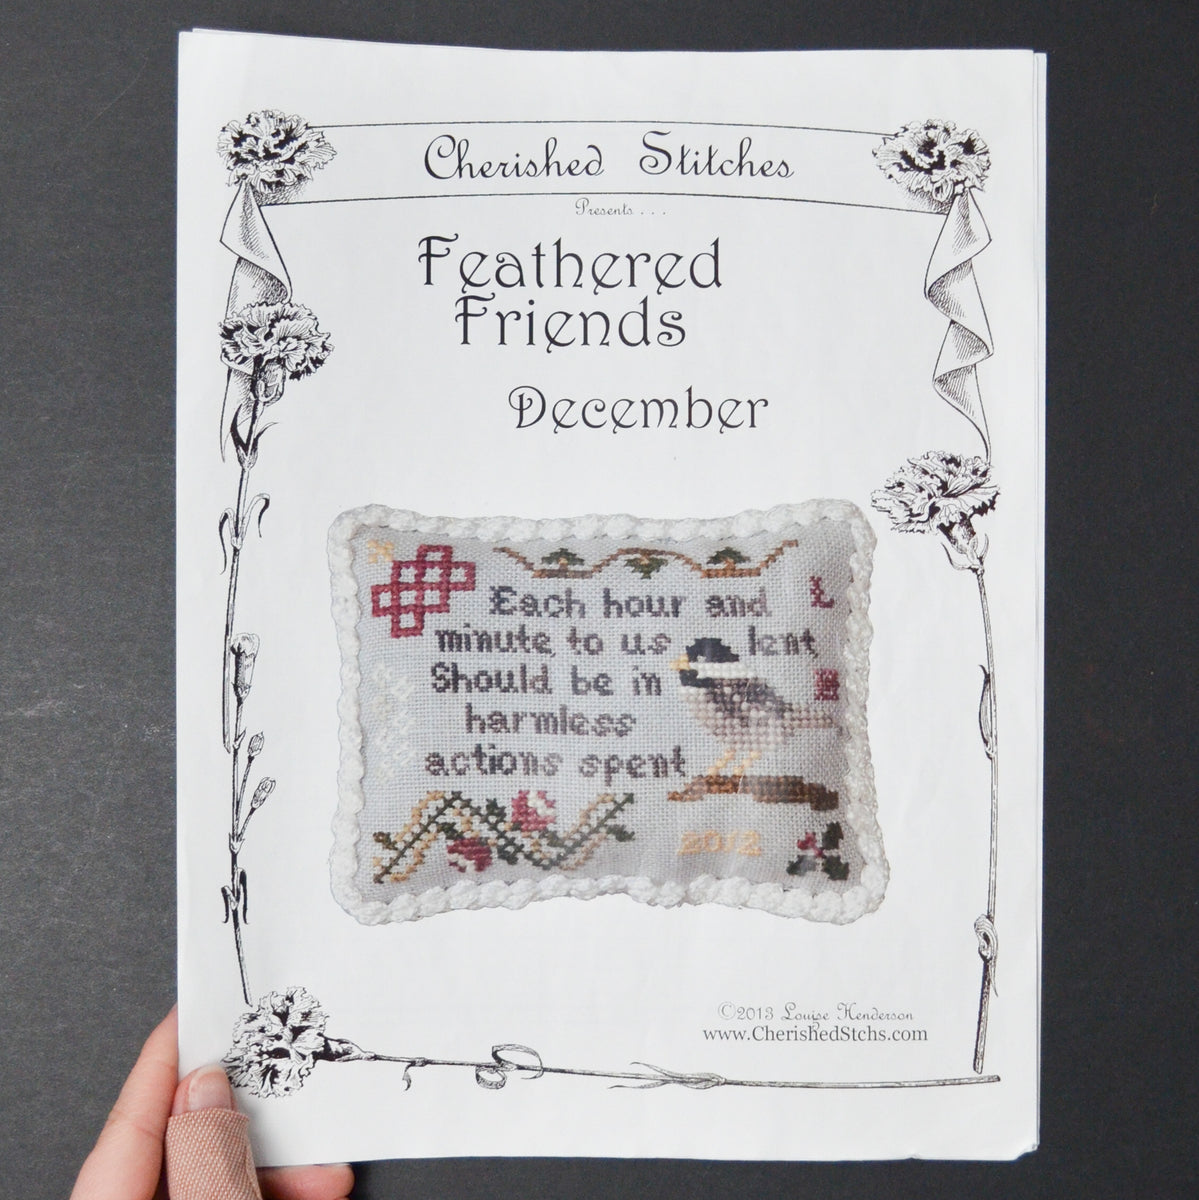 Cherished Stitches
Presents . . .
Feathered
Friends
December
Each hour and
minute to us lent
Should be in
harmless
actions spent
L
H
2012
©2013 Louise Henderson
www.CherishedStchs.com